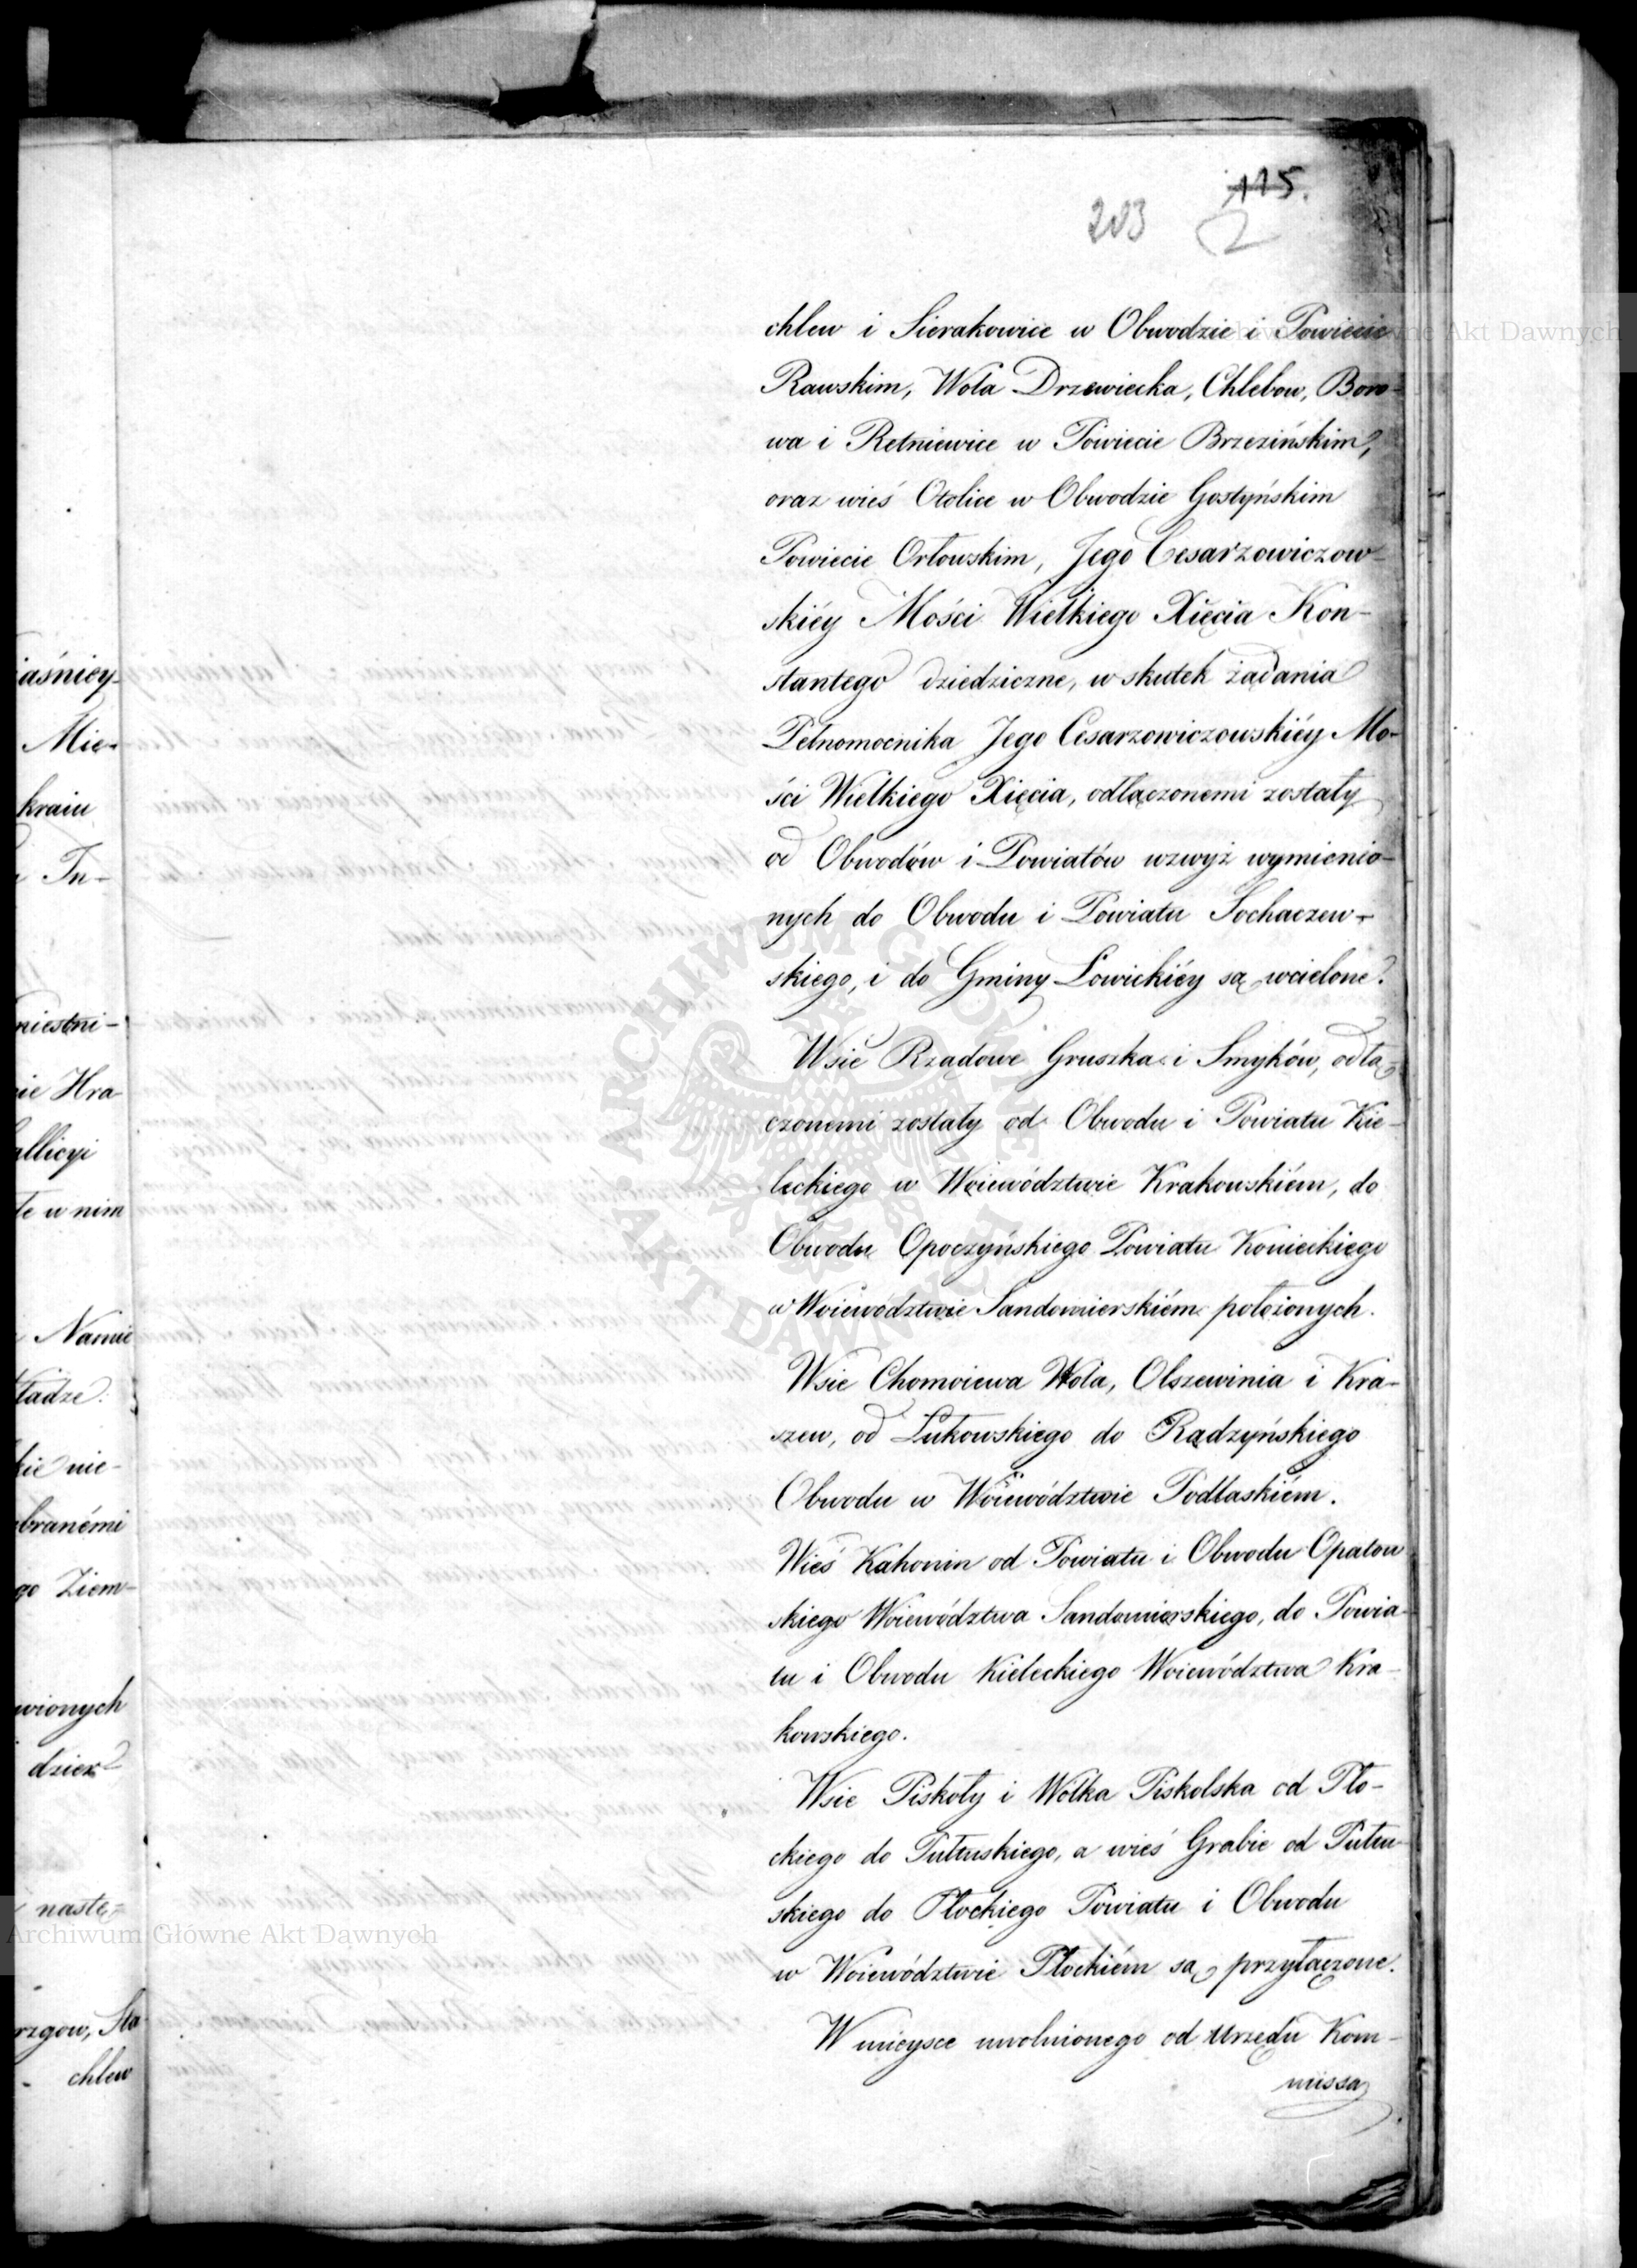 115.
203 2
chlew i Sierakowice w Obwodzie i Powiecie
Rawskim, Wola Drzewiecka, Chlebow, Boro-
wa i Retniewice w Powiecie Brzezińskim,
oraz wieś Otolice w Obwodzie Gostyńskim
Powiecie Orłowskim, Jego Cesarzowiczow-
skiéy Mości Wielkiego Xięcia Kon-
stantego dziedziczne, w skutek żądania
Pełnomocnika Jego Cesarzowiczowskiéy Mo-
ści Wielkiego Xięcia, odłączonemi zostały
od Obwodów i Powiatów wzwyż wymienio-
nych do Obwodu i Powiatu Sochaczew-
skiego, i do Gminy Łowickiéy są wcielone.
Wsie Rządowe Gruszka i Smyków, odłą-
czonemi zostały od Obwodu i Powiatu Kie-
leckiego w Woiewództwie Krakowskiém, do
Obwodu Opoczyńskiego Powiatu Konieckiego
w Woiewództwie Sandomierskiém położonych.
Wsie Chomoiewa Wola, Olszewinia i Kra-
szew, od Łukowskiego do Radzyńskiego
Obwodu w Woiewództwie Podlaskiém.
Wieś Kahonin od Powiatu i Obwodu Opatow
skiego Woiewództwa Sandomierskiego, do Powia-
tu i Obwodu Kieleckiego Woiewództwa Kra-
kowskiego.
Wsie Piskoły i Wólka Piskolska od Pło-
ckiego do Pułtuskiego, a wieś Grabie od Pułtu-
skiego do Płockiego Powiatu i Obwodu
w Woiewództwie Płockiém są przyłączone.
W mieysce uwolnionego od Urzędu Kom-
missa
iaśniey-
Mie-
kraiu
Tu-
miestni-
ie Hra
allicyi
te w nim
Namie
ładze:
kie nie-
branémi
go Ziem-
wionych
dzier
nastę-
rzgow, Sta
chlew
Archiwum Główne Akt Dawnych
ARCHIWUM GŁÓWNE AKT DAWNYCH